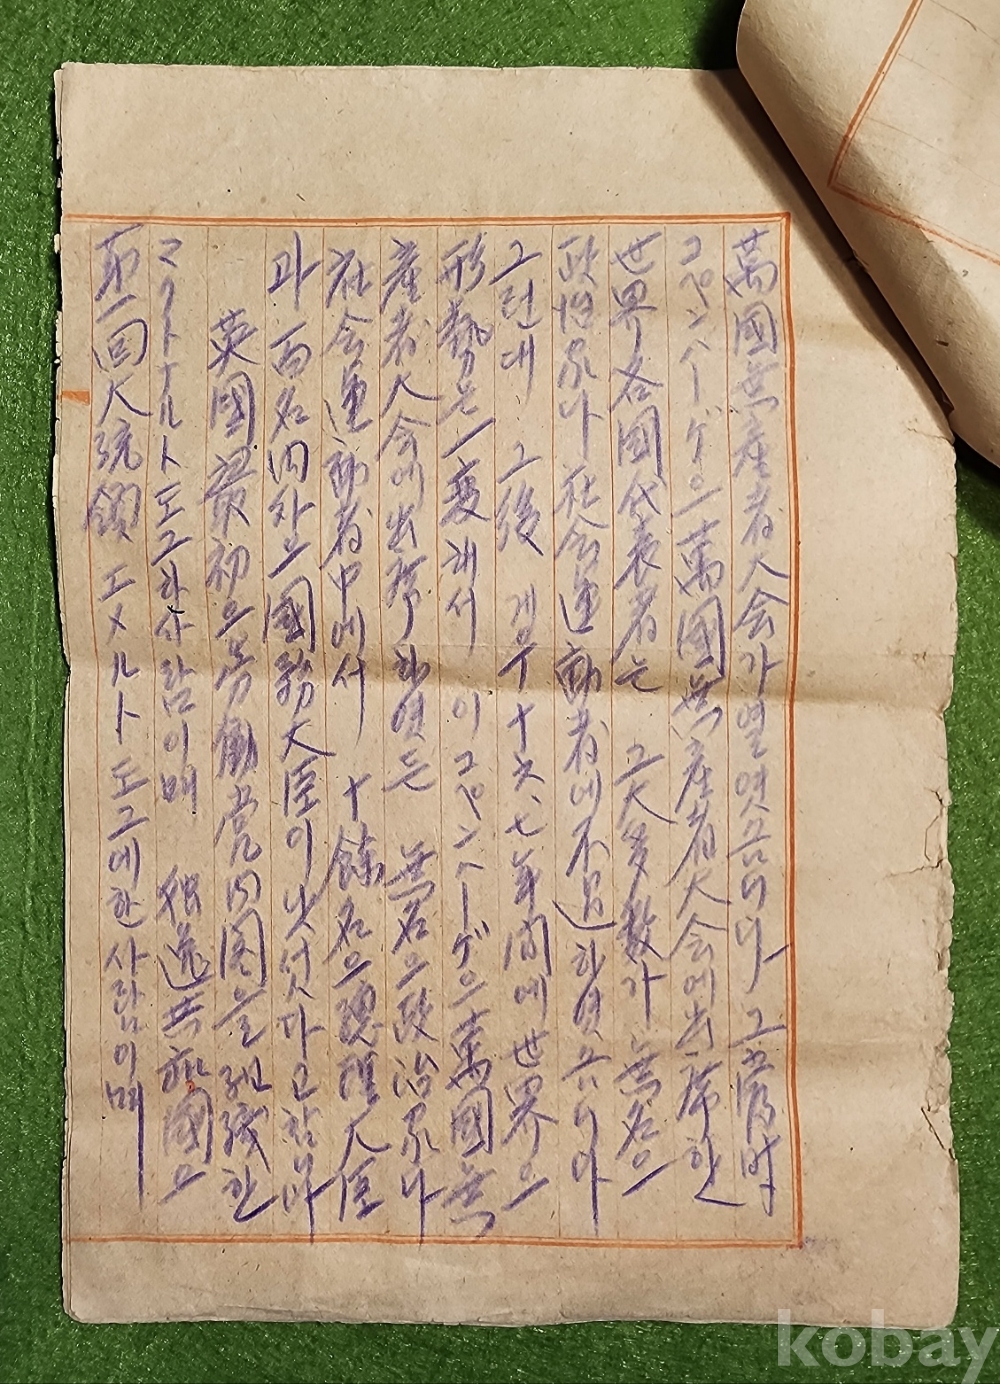 萬國無産者大会가열엿슴니다 그當時
コペンハーゲン으萬國無産者大会에出席한
世界各國代表者는 그大多数가 無名으
政治家나社会運動者에不過하엿슴니다
그런대 그後 겨우十六、七年間에世界으
形勢는一変해서 이コペンハーゲン으萬國無
産者大会에出席하엿든 無名으政治家나
社会運動者中에서 十餘名으總理大臣
과百名内外으國務大臣이낫섯다고함니다
英國最初으労働党内閣을組織한
マクドナルト도그하사람이며 独逸共和國으
第一回大統領 エメルト도그에한사람이며
kobay